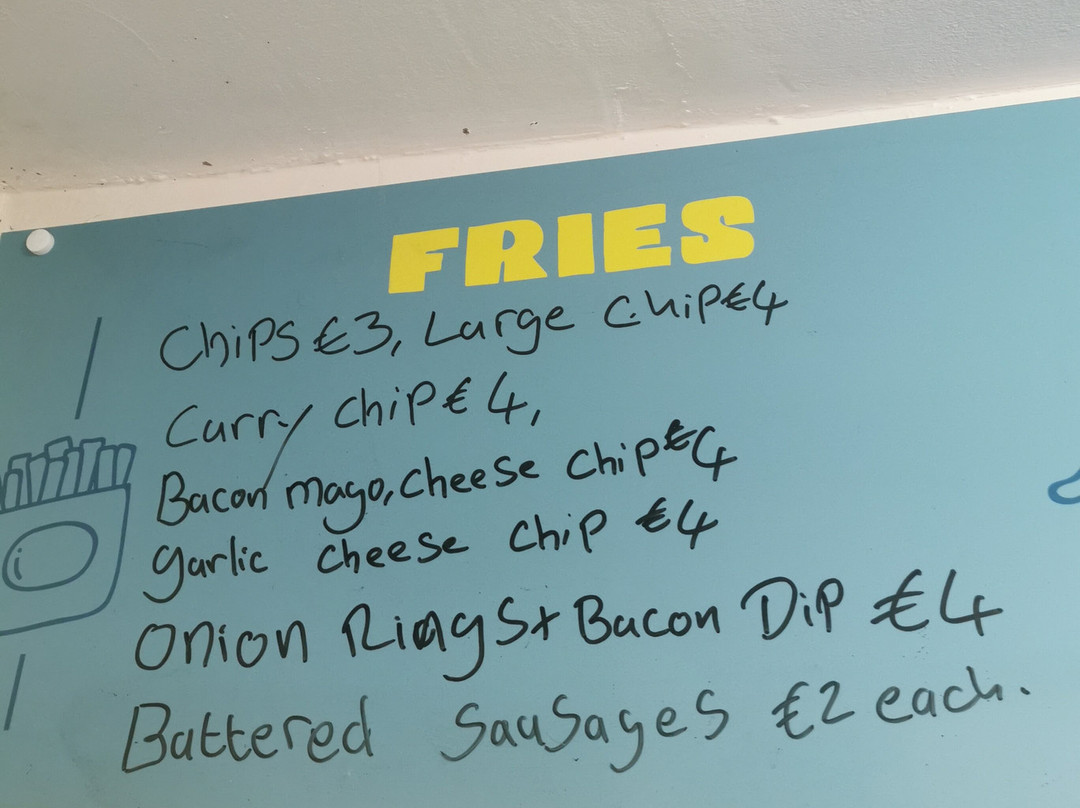 FRIES
Chips €3, Large Chip €4
Curry Chip € 4,
Bacon mayo, cheese chip €4
garlic cheese chip €4
Onion Rings + Bacon Dip €4
Battered Sausages €2 each.